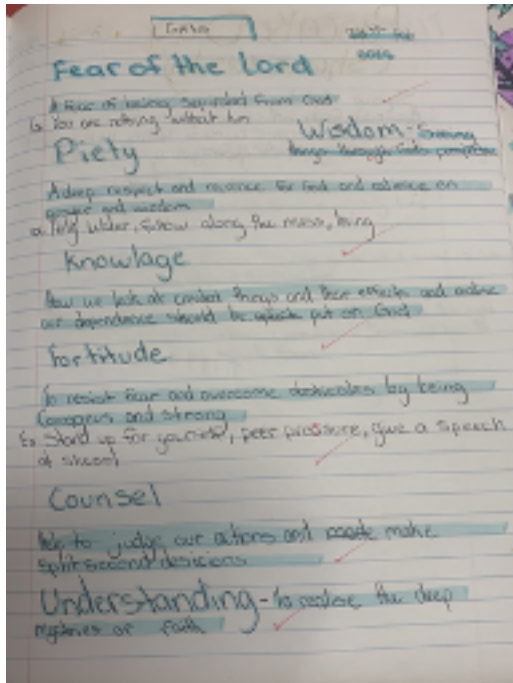 Fear of the Lord
A fear of being separated from God
↳ You are nothing without him
Wisdom - Seeing
things through God's perspective
Piety
A deep respect and reverance for God and reliance on
prayer and wisdom
Holy Water, follow along the mass,
Knowlage
How we look at created things and their effects and
our dependance should be put on God
fortitude
To resist fear and overcome by being
and strong
Ex Stand up for yourself, peer pressure, give a speech
at school
Counsel
Help to judge our actions and make
split second desicions
Understanding - to realise the deep
mysteries of faith